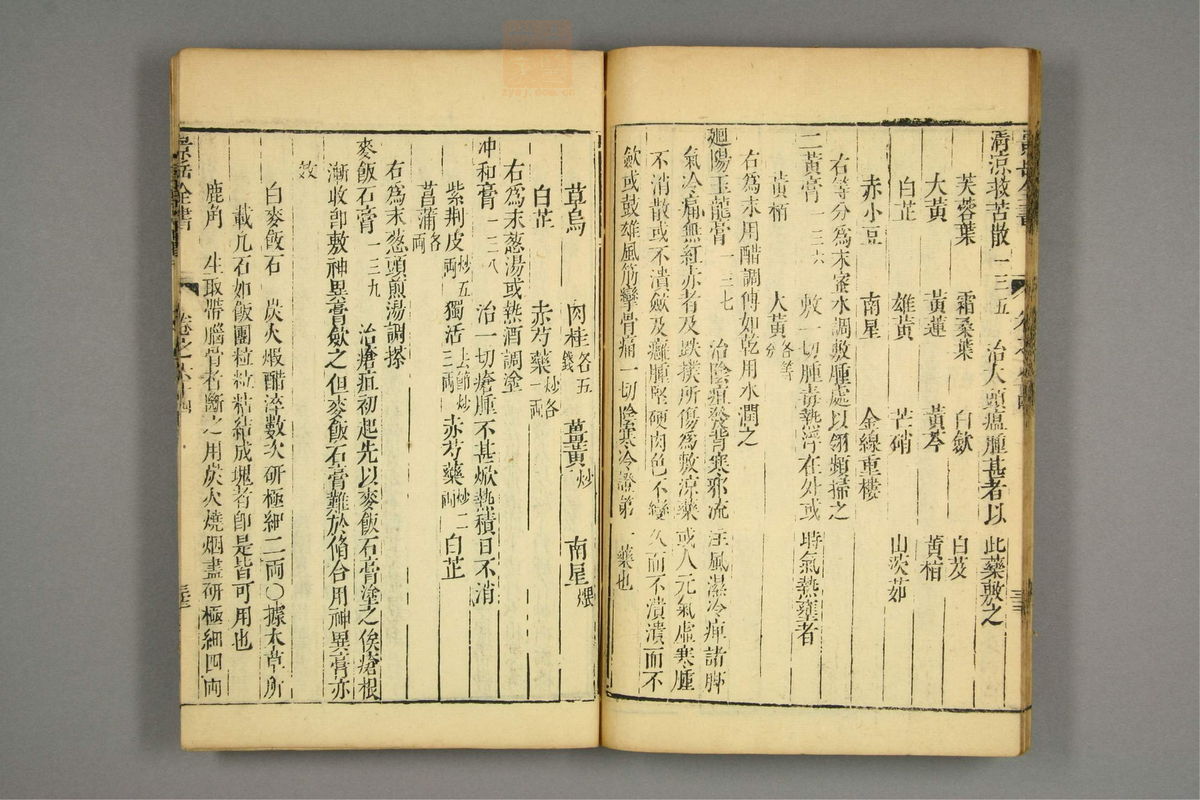 清涼救苦散一三五　治大頭瘟腫甚者以此藥敷之
芙蓉葉　霜桑葉　白歛　白芨
大黃　黃蓮　黃芩　黃栢
白芷　雄黃　芒硝　山茨菇
赤小豆　南星　金線重樓
右等分爲末蜜水調敷腫處以翎頻掃之
二黃膏一三六　敷一切腫毒熱浮在外或時氣熱壅者
黃栢　大黃各等分
右爲末用醋調傅如乾用水潤之
廻陽玉龍膏一三七　治陰疽發背寒邪流注風濕冷痺諸脚
氣冷痛無紅赤者及跌撲所傷爲敷涼藥或人元氣虛寒腫
不消散或不潰歛及癰腫堅硬肉色不變久而不潰潰而不
歛或鼓雄風筋攣骨痛一切陰寒冷證第一藥也
草烏　肉桂各五錢　薑黃炒　南星煨
白芷　赤芍藥炒各一兩
右爲末葱湯或熱酒調塗
冲和膏一三八　治一切瘡腫不甚焮熱積日不消
紫荆皮炒五兩　獨活去節炒三兩　赤芍藥炒二兩　白芷
菖蒲各兩
右爲末葱頭煎湯調搽
麥飯石膏一三九　治瘡疽初起先以麥飯石膏塗之俟瘡根
漸收卽敷神異膏歛之但麥飯石膏難於脩合用神異膏亦
效
白麥飯石　炭火煅醋淬數次研極細二兩○據本草所
載凡石如飯團粒粒粘結成塊者卽是皆可用也
鹿角　生取帶腦骨者斷之用炭火燒烟盡研極細四兩
景岳全書　卷之六十四